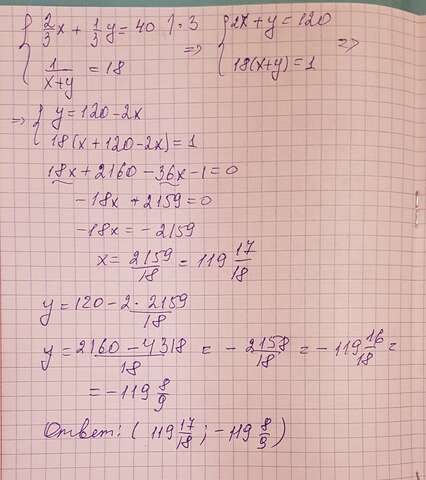 { 2/3 x + 1/3 y = 40 | · 3 => { 2x + y = 120 =>
1/(x+y) = 18 18(x+y) = 1
=> { y = 120 - 2x
18(x + 120 - 2x) = 1
18x + 2160 - 36x - 1 = 0
-18x + 2159 = 0
-18x = - 2159
x = 2159/18 = 119 17/18
y = 120 - 2 · 2159/18
y = (2160 - 4318)/18 = - 2158/18 = - 119 16/18 =
= -119 8/9
Ответ: ( 119 17/18 ; -119 8/9 )